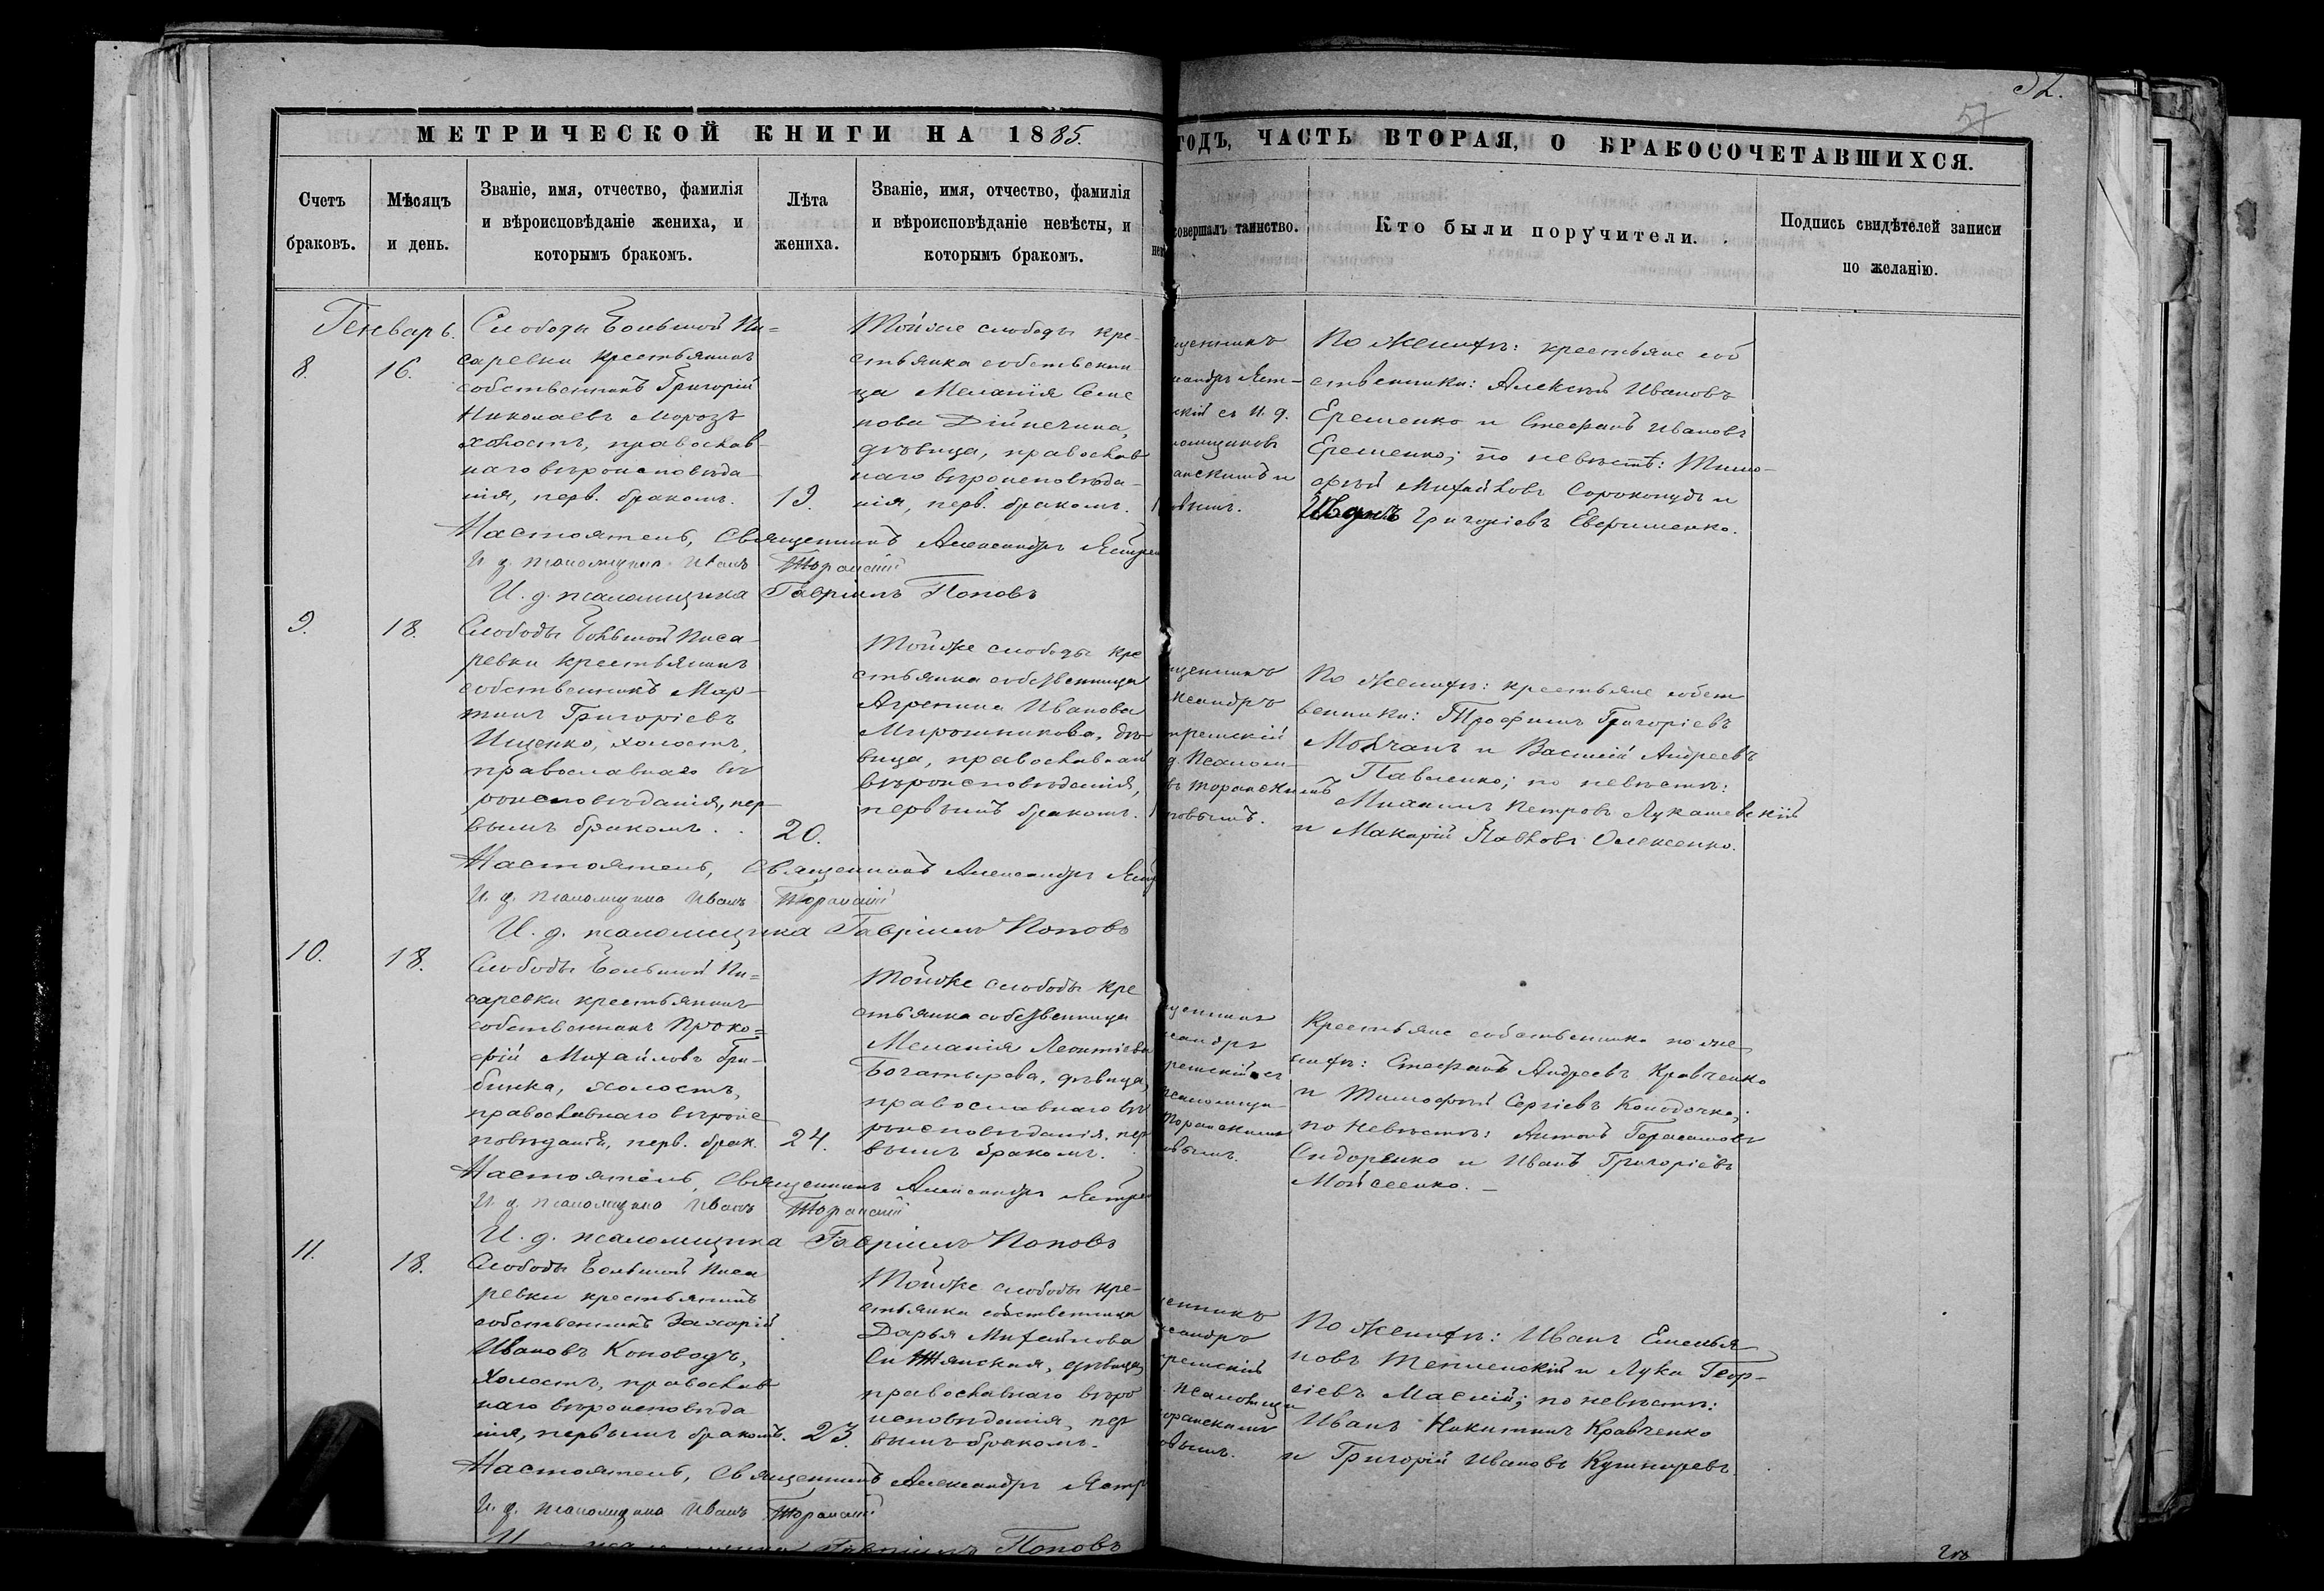 52.
57
МЕТРИЧЕСКОЙ КНИГИ НА 1885.
ГОДЪ, ЧАСТЬ ВТОРАЯ, О БРАКОСОЧЕТАВШИХСЯ.
Счетъ
браковъ.
Мѣсяцъ
и день.
Званіе, имя, отчество, фамилія
и вѣроисповѣданіе жениха, и
которымъ бракомъ.
Лѣта
жениха.
Званіе, имя, отчество, фамилія
и вѣроисповѣданіе невѣсты, и
которымъ бракомъ.
совершалъ таинство.
Кто были поручители.
Подпись свидѣтелей записи
по желанію.
Генварь.
8.
16.
Слободы Большой Пи=
саревки крестьянинъ
собственникъ Григорій
Николаевъ Морозъ
холостъ, православ-
наго вѣроисповѣда-
нія, перв. бракомъ.
19.
Тойже слободы кре-
стьянка собственни
ца Меланія Семе
нова
дѣвица, православ
наго вѣроисповѣда-
нія, перв. бракомъ.
щенникъ
сандръ Яст-
скій съ И. д.
ломщиковъ
анскимъ и
овымъ.
По женихѣ: крестьяне соб
ственники: Алексѣй Ивановъ
Еременко и Стефанъ Ивановъ
Еременко; по невѣстѣ: Тимо-
фѣй Михайловъ Сорокопудъ и
Иванъ Григоріевъ Евфименко.
Настоятель, Священникъ Александръ
И. д. псаломщика Иванъ Торанскій
И. д. псаломщика Гавріилъ Поповъ
9.
18.
Слободы Большой Писа-
ревки крестьянинъ
собственникъ Мар-
тинъ Григоріевъ
Ищенко, холостъ,
православнаго вѣ
роисповѣданія, пер-
вымъ бракомъ.
20.
Тойже слободы кре
стьянка собственница
Агрепина Иванова
Мирошникова, дѣ-
вица, православнаго
вѣроисповѣданія,
первымъ бракомъ.
щенникъ
ксандръ
тремскій
д. Псалом-
въ Торанскимъ
повымъ.
По женихѣ: крестьяне собст
венники: Трофимъ Григоріевъ
Молчанъ и Василій Андреевъ
Павленко; по невѣстѣ:
Михаилъ Петровъ Лукашевскій
и Макарій Павловъ Олексенко.
Настоятель, Священникъ Александръ
И. д. псаломщика Иванъ Торанскій
И. д. псаломщика Гавріилъ Поповъ
10.
18.
Слободы Большой Пи=
саревки крестьянинъ
собственникъ Проко=
фій Михайловъ Гри-
бинка, холостъ,
православнаго вѣроис
повѣданія, перв. брак.
24.
Тойже слободы кре
стьянка собственница
Меланія Леонтіева
Богатырева, дѣвица,
православнаго вѣ
роисповѣданія, пер
вымъ бракомъ.
щенникъ
сандръ
ремскій съ
псаломщи-
Торанскимъ
овымъ.
Крестьяне собственники по же
нихѣ: Стефанъ Андреевъ Кравченко
и Тимофѣй Сергіевъ Колодочка;
по невѣстѣ: Антонъ Герасимовъ
Сидоренко и Иванъ Григоріевъ
Мойсеенко.
Настоятель, Священникъ Александръ
И. д. псаломщика Иванъ Торанскій
И. д. псаломщика Гавріилъ Поповъ
11.
18.
Слободы Большой Писа
ревки крестьянинъ
собственникъ Захарій
Ивановъ Коноводъ,
холостъ, православ
наго вѣроисповѣда
нія, первымъ бракомъ.
23.
Тойже слободы кре-
стьянка собственница
Дарья Михайлова
дѣвица,
православнаго вѣро
исповѣданія, пер
вымъ бракомъ.
щенникъ
ксандръ
ремскій
псаломщи
оранскимъ
овымъ.
По женихѣ: Иванъ Емелья
новъ Тепленскій и Лука Геор-
гіевъ Маслій; по невѣстѣ:
Иванъ Никитинъ Кравченко
и Григорій Ивановъ Кушниревъ.
Настоятель, Священникъ Александръ
И. д. псаломщика Иванъ Торанскій
И. д. псаломщика Гавріилъ Поповъ